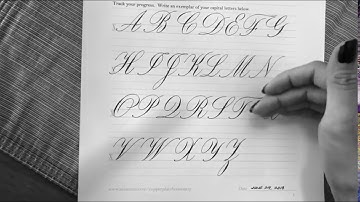 Track your progress. Write an exemplar of your capital letters below.
A B C D E F G
H I J K L M N
O P Q R S T
V W X Y Z
Date